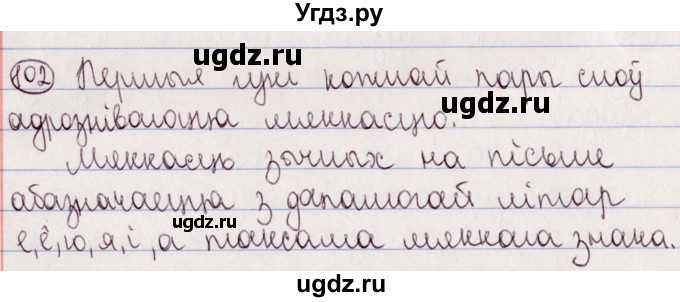 Угдз.ру
102 Першыя гукі кожнай пары слоў
адрозніваюцца мяккасцю.
Мяккасць зычных на пісьме
абазначаецца з дапамогай літар
е, ё, ю, я, і, а таксама мяккага знака.
ugdz.ru
ugdz.ru
ugdz.ru
ugdz.ru